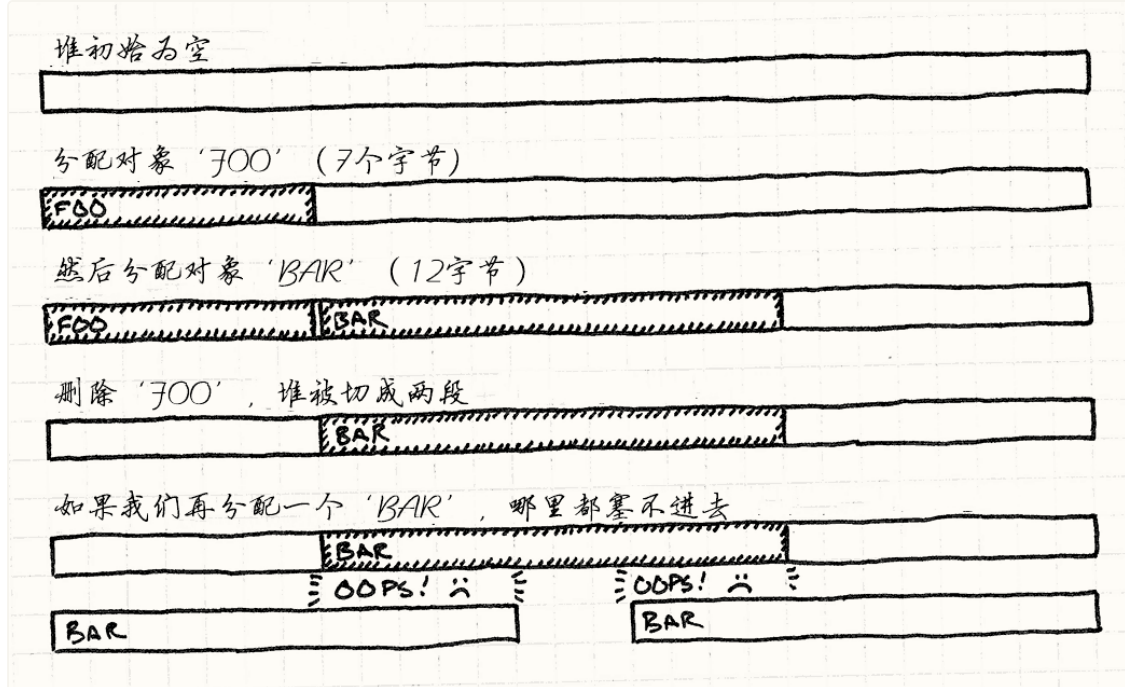 堆初始为空
分配对象‘FOO’（7个字节）
FOO
然后分配对象‘BAR’（12字节）
FOO BAR
删除‘FOO’，堆被切成两段
BAR
如果我们再分配一个‘BAR’，哪里都塞不进去
BAR
OOPS! OOPS!
BAR BAR